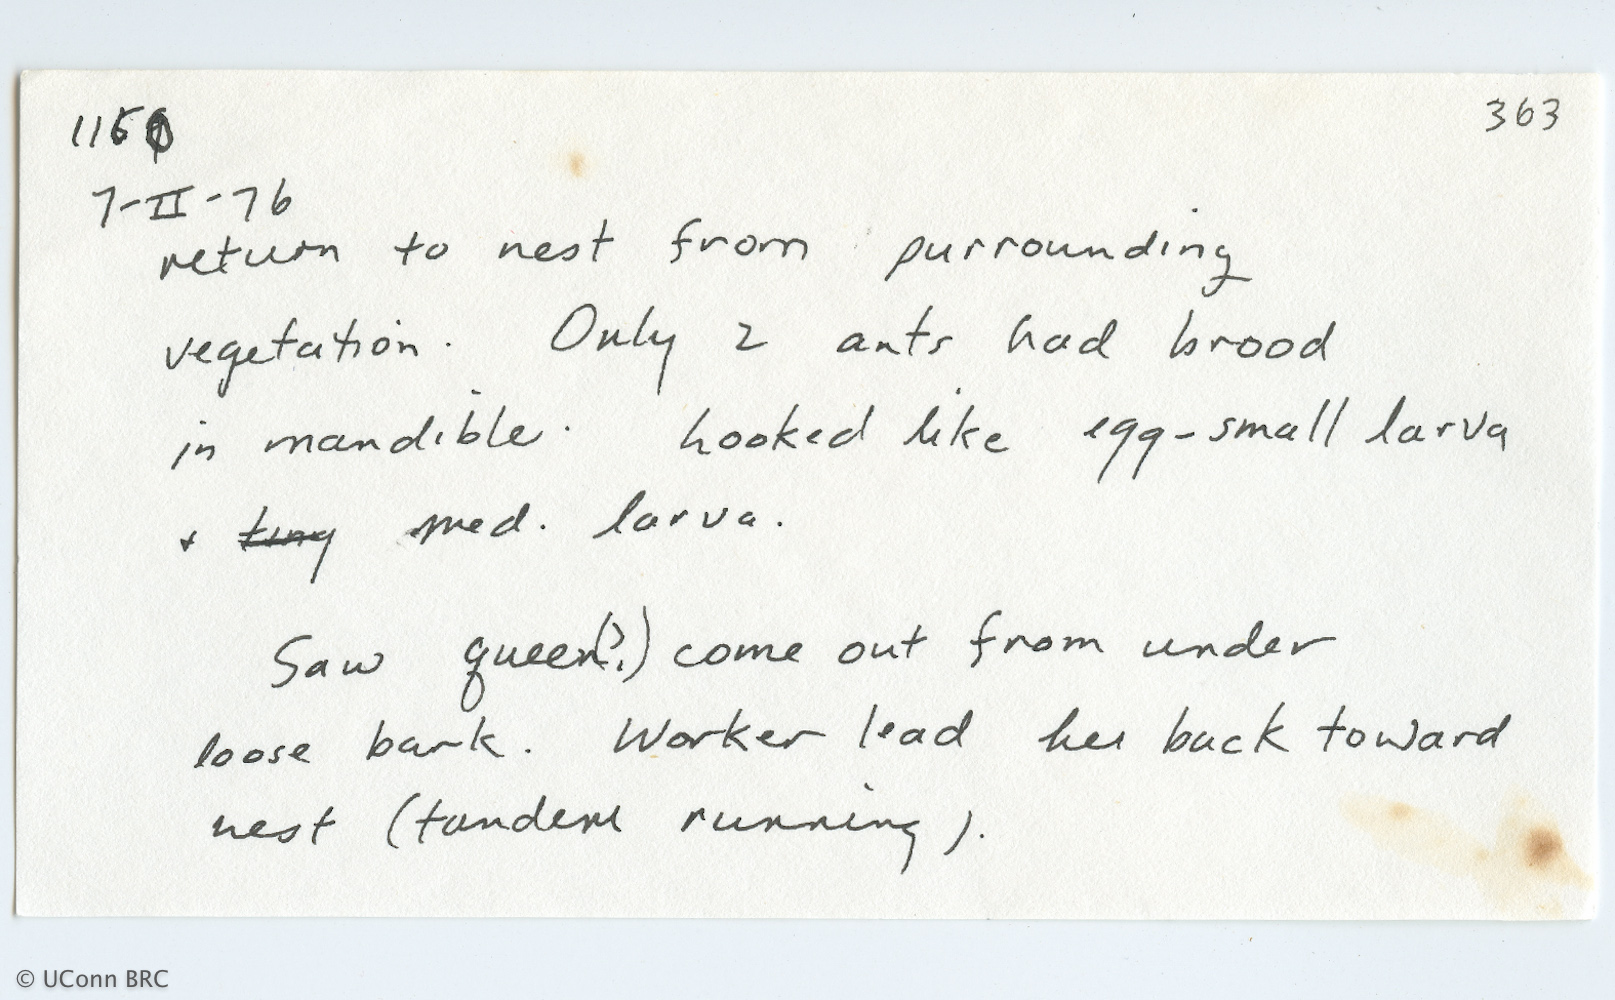 1150 363
7-II-76
return to nest from surrounding
vegetation. Only 2 ants had brood
in mandible. looked like egg-small larva
+ tiny med. larva.
Saw queen(?) come out from under
loose bark. Worker lead her back toward
nest (tandem running).
© UConn BRC